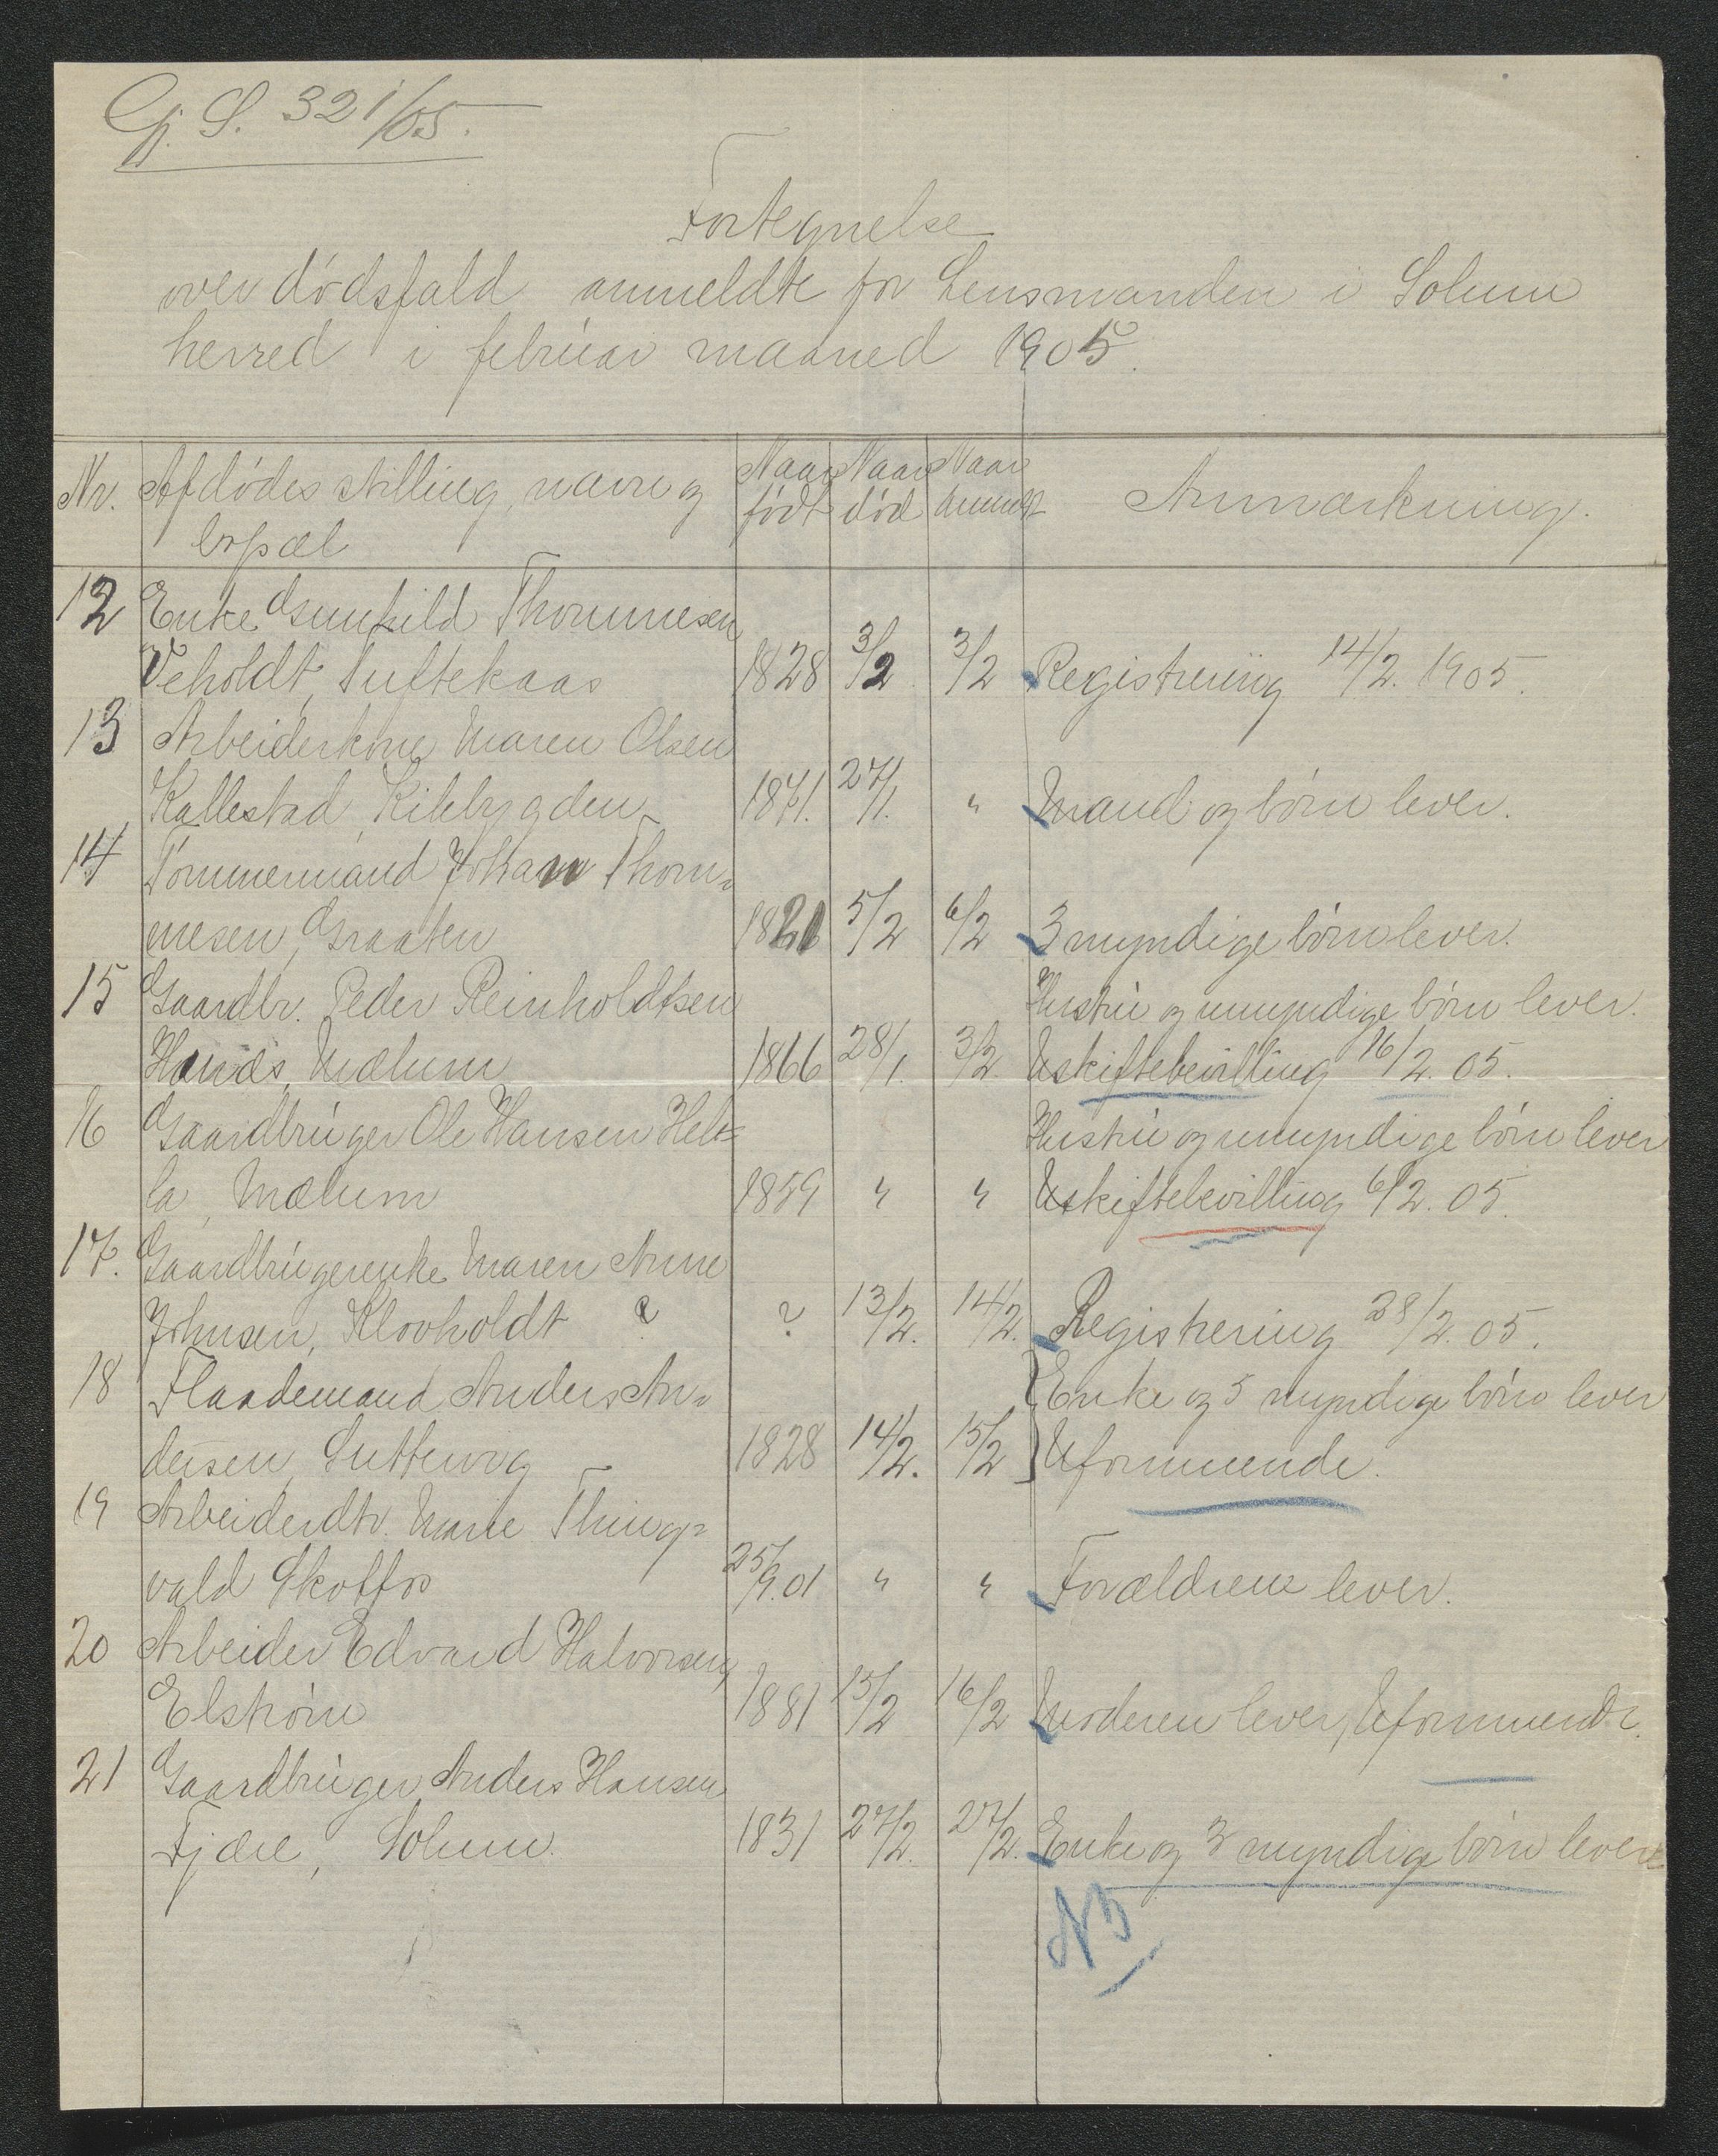 Gj. S. 321/05.
Fortegnelse
over dødsfald anmeldte for Lensmanden i Solum
herred i februar maaned 1905.
Nr. Afdødes stilling, navn og bopæl Naar født Naar død Naar anmeldt Anmærkning.
12 Enke Gunhild Thommesen
Veholdt, Tuftekaas 1828 3/2 3/2 Registrering 14/2. 1905.
13 Arbeiderkone Maren Olsen
Kallestad, Kilebygden 1871. 27/1. " Mand og børn lever.
14 Tømmermand Johan Thom-
mesen, Graaten 1821 5/2 6/2 3 myndige børn lever.
15 Gaardbr. Peder Reinholdtsen Hustru og umyndige børn lever.
Hauds, Mælum 1866 28/1. 3/2. Uskiftebevilling 16/2. 05.
16 Gaardbruger Ole Hansen Hel- Hustru og umyndige børn lever
la, Mælum 1859 " " Uskiftebevilling 6/2. 05.
17. Gaardbrugerenke Maren Anne
Johnsen, Klovholdt ? ? 13/2. 14/2. Registrering 28/2. 05.
18 Flaademand Anders An- Enke og 5 myndige børn lever
dersen, 1828 14/2. 15/2 Uformuende.
19 Arbeiderdtr. Marie Thing-
vald Skotfos 25/9.01 " " Forældrene lever.
20 Arbeider Edvard Halvorsen,
Elstrøm 1881 15/2 16/2 Moderen lever, Uformuende.
21 Gaardbruger Anders Hansen
Fjære, Solum. 1831 27/2. 27/2. Enke og 3 myndige børn lever
NB